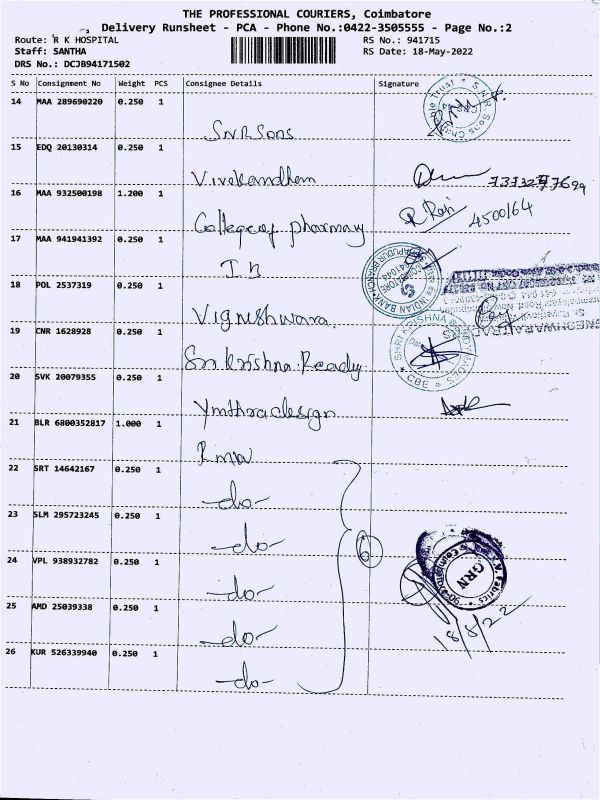 THE PROFESSIONAL COURIERS, Coimbatore
Delivery Runsheet - PCA - Phone No.:0422-3505555 - Page No.:2
Route: R K HOSPITAL RS No.: 941715
Staff: SANTHA RS Date: 18-May-2022
DRS No.: DCJB94171502
S No Consignment No Weight PCS Consignee Details Signature
14 MAA 289690220 0.250 1
SNR Sons
15 EDQ 20130314 0.250 1
Vivekandhem
16 MAA 932500198 1.200 1
College of pharmacy R Rani 4500164
17 MAA 941941392 0.250 1
I B
18 POL 2537319 0.250 1
Vignishwara
19 CNR 1628928 0.250 1
Sri Krishna Ready
20 SVK 20079355 0.250 1
Ymthra design
21 BLR 6800352817 1.000 1
RMW
22 SRT 14642167 0.250 1
-do-
23 SLM 295723245 0.250 1
-do- 6
24 VPL 938932782 0.250 1
-do- GRN
25 AMD 25039338 0.250 1
-do- 18/8/22
26 KUR 526339940 0.250 1
-do-